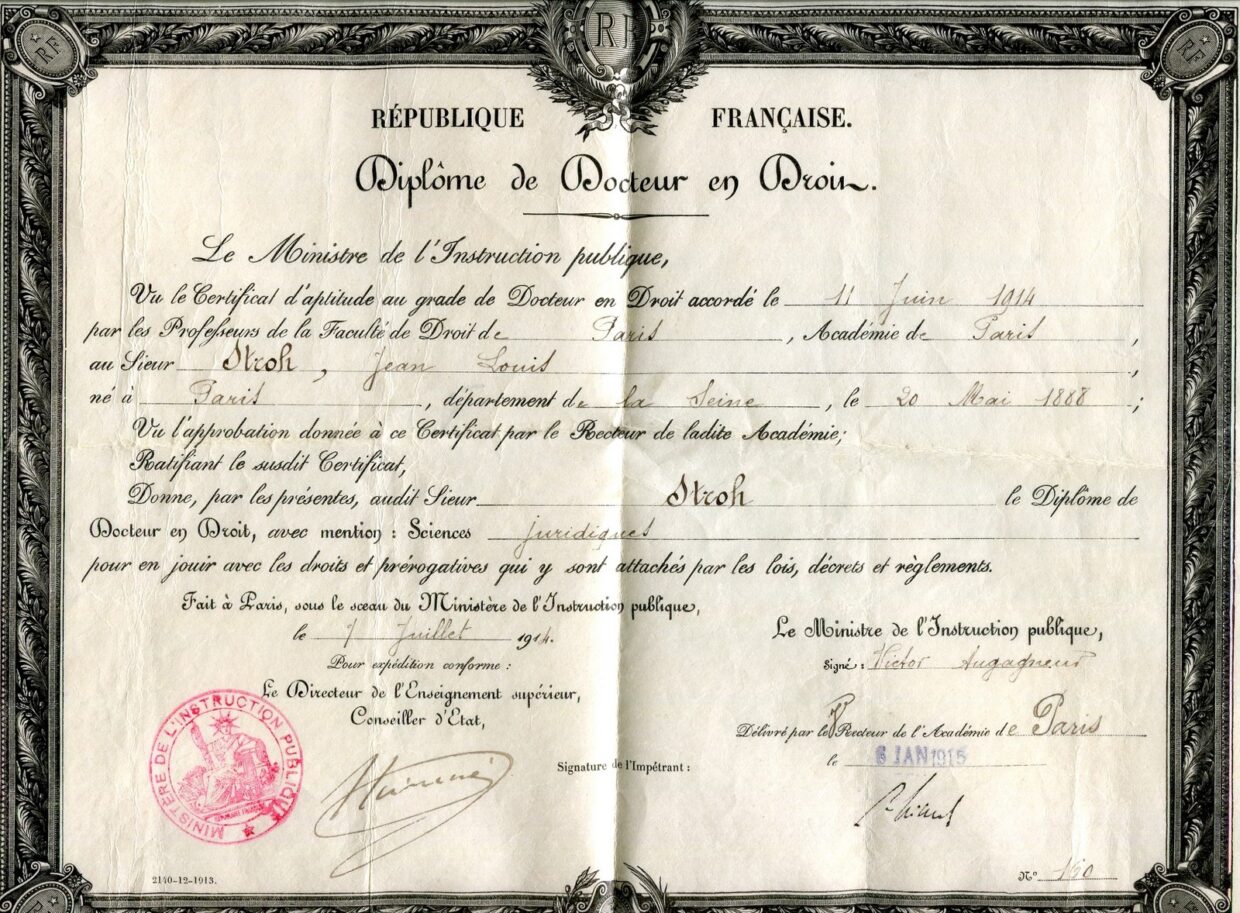 RF
RF
RF
RÉPUBLIQUE FRANÇAISE.
Diplôme de Docteur en Droit.
Le Ministre de l'Instruction publique,
Vu le Certificat d'aptitude au grade de Docteur en Droit accordé le 11 Juin 1914
par les Professeurs de la Faculté de Droit de Paris, Académie de Paris,
au Sieur Stroh, Jean Louis,
né à Paris, département de la Seine, le 20 Mai 1888;
Vu l'approbation donnée à ce Certificat par le Recteur de ladite Académie;
Ratifiant le susdit Certificat,
Donne, par les présentes, audit Sieur Stroh le Diplôme de
Docteur en Droit, avec mention : Sciences juridiques
pour en jouir avec les droits et prérogatives qui y sont attachés par les lois, décrets et règlements.
Fait à Paris, sous le sceau du Ministère de l'Instruction publique,
le 7 Juillet 1914.
Pour expédition conforme :
Le Directeur de l'Enseignement supérieur,
Conseiller d'Etat,
MINISTÈRE DE L'INSTRUCTION PUBLIQUE
Le Ministre de l'Instruction publique,
Signé : Victor Augagneur
Délivré par le Recteur de l'Académie de Paris
le 6 JAN 1915
Signature de l'Impétrant :
2140-12-1913.
N° 150